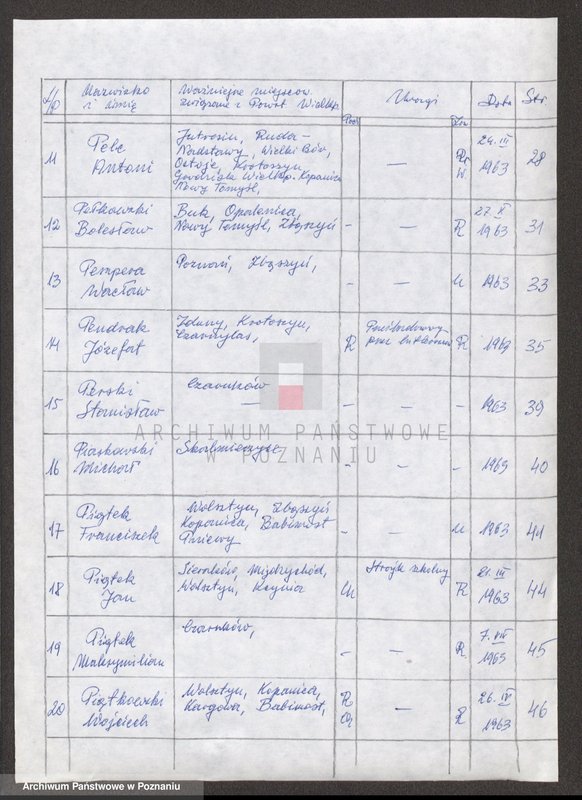 L/p Nazwisko i imię Ważniejsze miejscow. związane z Powst. Wielkp. Uwagi Data Str.
11 Pelc Antoni Jutrosin, Ruda – Nadstawy, Wielki Bór, Ostoje, Krotoszyn, Wielkp. Kopanica Nowy Tomyśl, — R W 24.III 1963 28
12 Petkowski Bolesław Buk, Opalenica, Nowy Tomyśl, Zbąszyń - — R 27.X 1963 31
13 Pempera Wacław Poznań, Zbąszyń, - — U 1963 33
14 Pendrak Józefat Zduny, Krotoszyn, Czarnylas, R przez R 1963 35
15 Perski Stanisław Czarnków — - — - 1963 39
16 Piaskowski Michał Skalmierzyce - — - 1963 40
17 Piątek Franciszek Wolsztyn, Zbąszyń Kopanica, Babimost Pniewy - — U 1963 41
18 Piątek Jan Sieraków, Międzychód, Wolsztyn, Kcynia U Strajk szkolny R 21.III 1963 44
19 Piątek Maksymilian Czarnków, - — R 7.VII 1963 45
20 Piątkowski Wojciech Wolsztyn, Kopanica, Kargowa, Babimost, R — R 26.IV 1963 46
ARCHIWUM PAŃSTWOWE
W POZNANIU
Archiwum Państwowe w Poznaniu